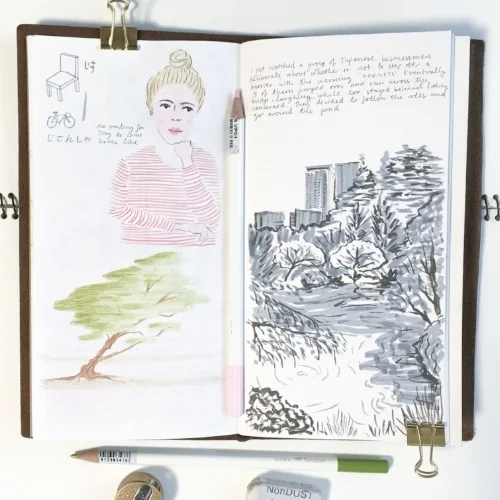 いす
じてんしゃ
me waiting for
Tony to come
home like
I just watched a group of Japanese businessmen
deliberate about whether or not to use a
shortcut with the warning "HORNETS". Eventually
3 of them jumped over and ran across the
bridge laughing, while two stayed behind looking
concerned. They decided to follow the rules and
go around the pond.
NonDUST